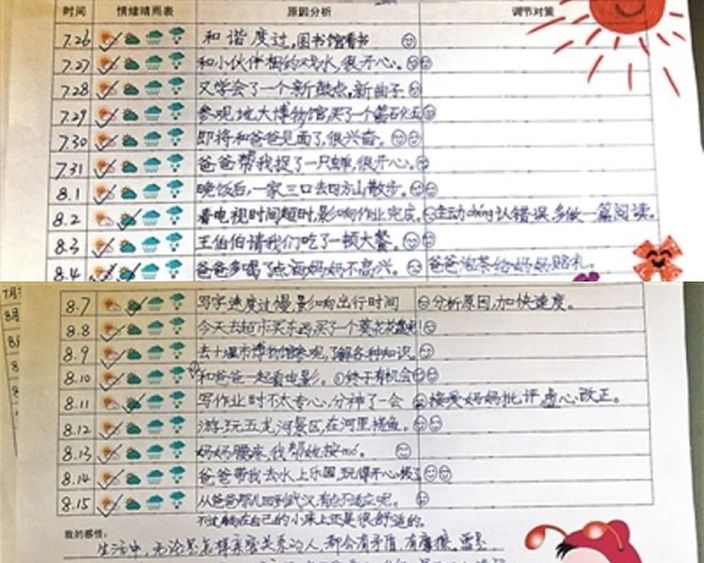 时间 情绪晴雨表 原因分析 调节对策
7.26 和谐度过,图书馆看书
7.27 和小伙伴相约戏水,很开心。
7.28 又学会了一个新鼓点,新曲子
7.29 参观地大博物馆买了一个
7.30 即将和爸爸见面了,很兴奋。
7.31 爸爸帮我捉了一只蝉,很开心。
8.1 晚饭后,一家三口去四方山散步。
8.2 看电视时间超时,影响作业完成。 主动chéng认错误,多做一篇阅读。
8.3 王伯伯请我们吃了一顿大餐。
8.4 爸爸多喝了点酒妈妈不高兴。 爸爸泡茶给妈妈赔礼。
7月
8月
8.7 写字速度过慢,影响出行时间 分析原因,加快速度。
8.8 今天去超市买东西买了个葵花
8.9 去十堰市博物馆参观,了解各种知识。
8.10 和爸爸一起看电影。终于有机会
8.11 写作业时不太专心,分神了一会 接受妈妈批评,虚心改正。
8.12 游玩五龙河景区,在河里捕鱼。
8.13 妈妈腰疼,我帮她按mó。
8.14 爸爸带我去水上乐园,玩得开心极了
8.15 从爸爸那儿回到武汉,有点不适应呢。
不过躺在自己的小床上还是很舒适的。
我的感悟:
生活中,无论是怎样亲密关系的人,都会有矛盾,有摩擦。